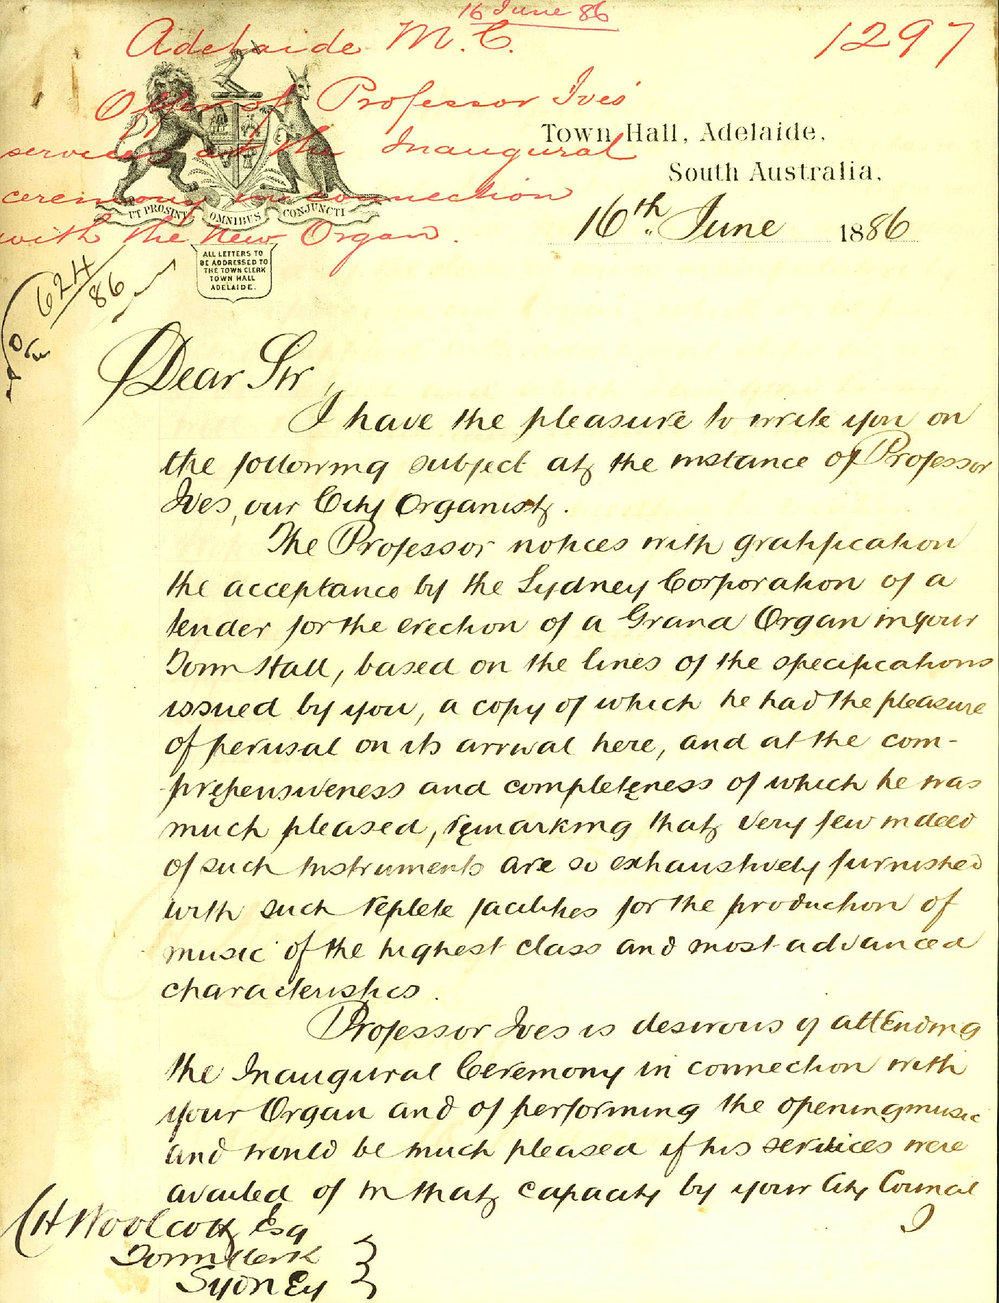 16 June 86
Adelaide M. C.
1297
Offer of Professor Ives'
services at the Inaugural
ceremony in connection
with the New Organ.
UT PROSINT OMNIBUS CONJUNCTI
ALL LETTERS TO
BE ADDRESSED TO
THE TOWN CLERK
TOWN HALL
ADELAIDE.
Town Hall, Adelaide,
South Australia,
16th June 1886
624
86
Dear Sir,
I have the pleasure to write you on
the following subject at the instance of Professor
Ives, our City Organist.
The Professor notices with gratification
the acceptance by the Sydney Corporation of a
tender for the erection of a Grand Organ in your
Town Hall, based on the lines of the specifications
issued by you, a copy of which he had the pleasure
of perusal on its arrival here, and at the com-
prehensiveness and completeness of which he was
much pleased, remarking that very few indeed
of such Instruments are so exhaustively furnished
with such replete facilities for the production of
music of the highest class and most advanced
characteristics.
Professor Ives is desirous of attending
the Inaugural Ceremony in connection with
your Organ and of performing the opening music
and would be much pleased if his services were
availed of in that capacity by your City Council
I
C H Woolcott Esq
Town Clerk
Sydney